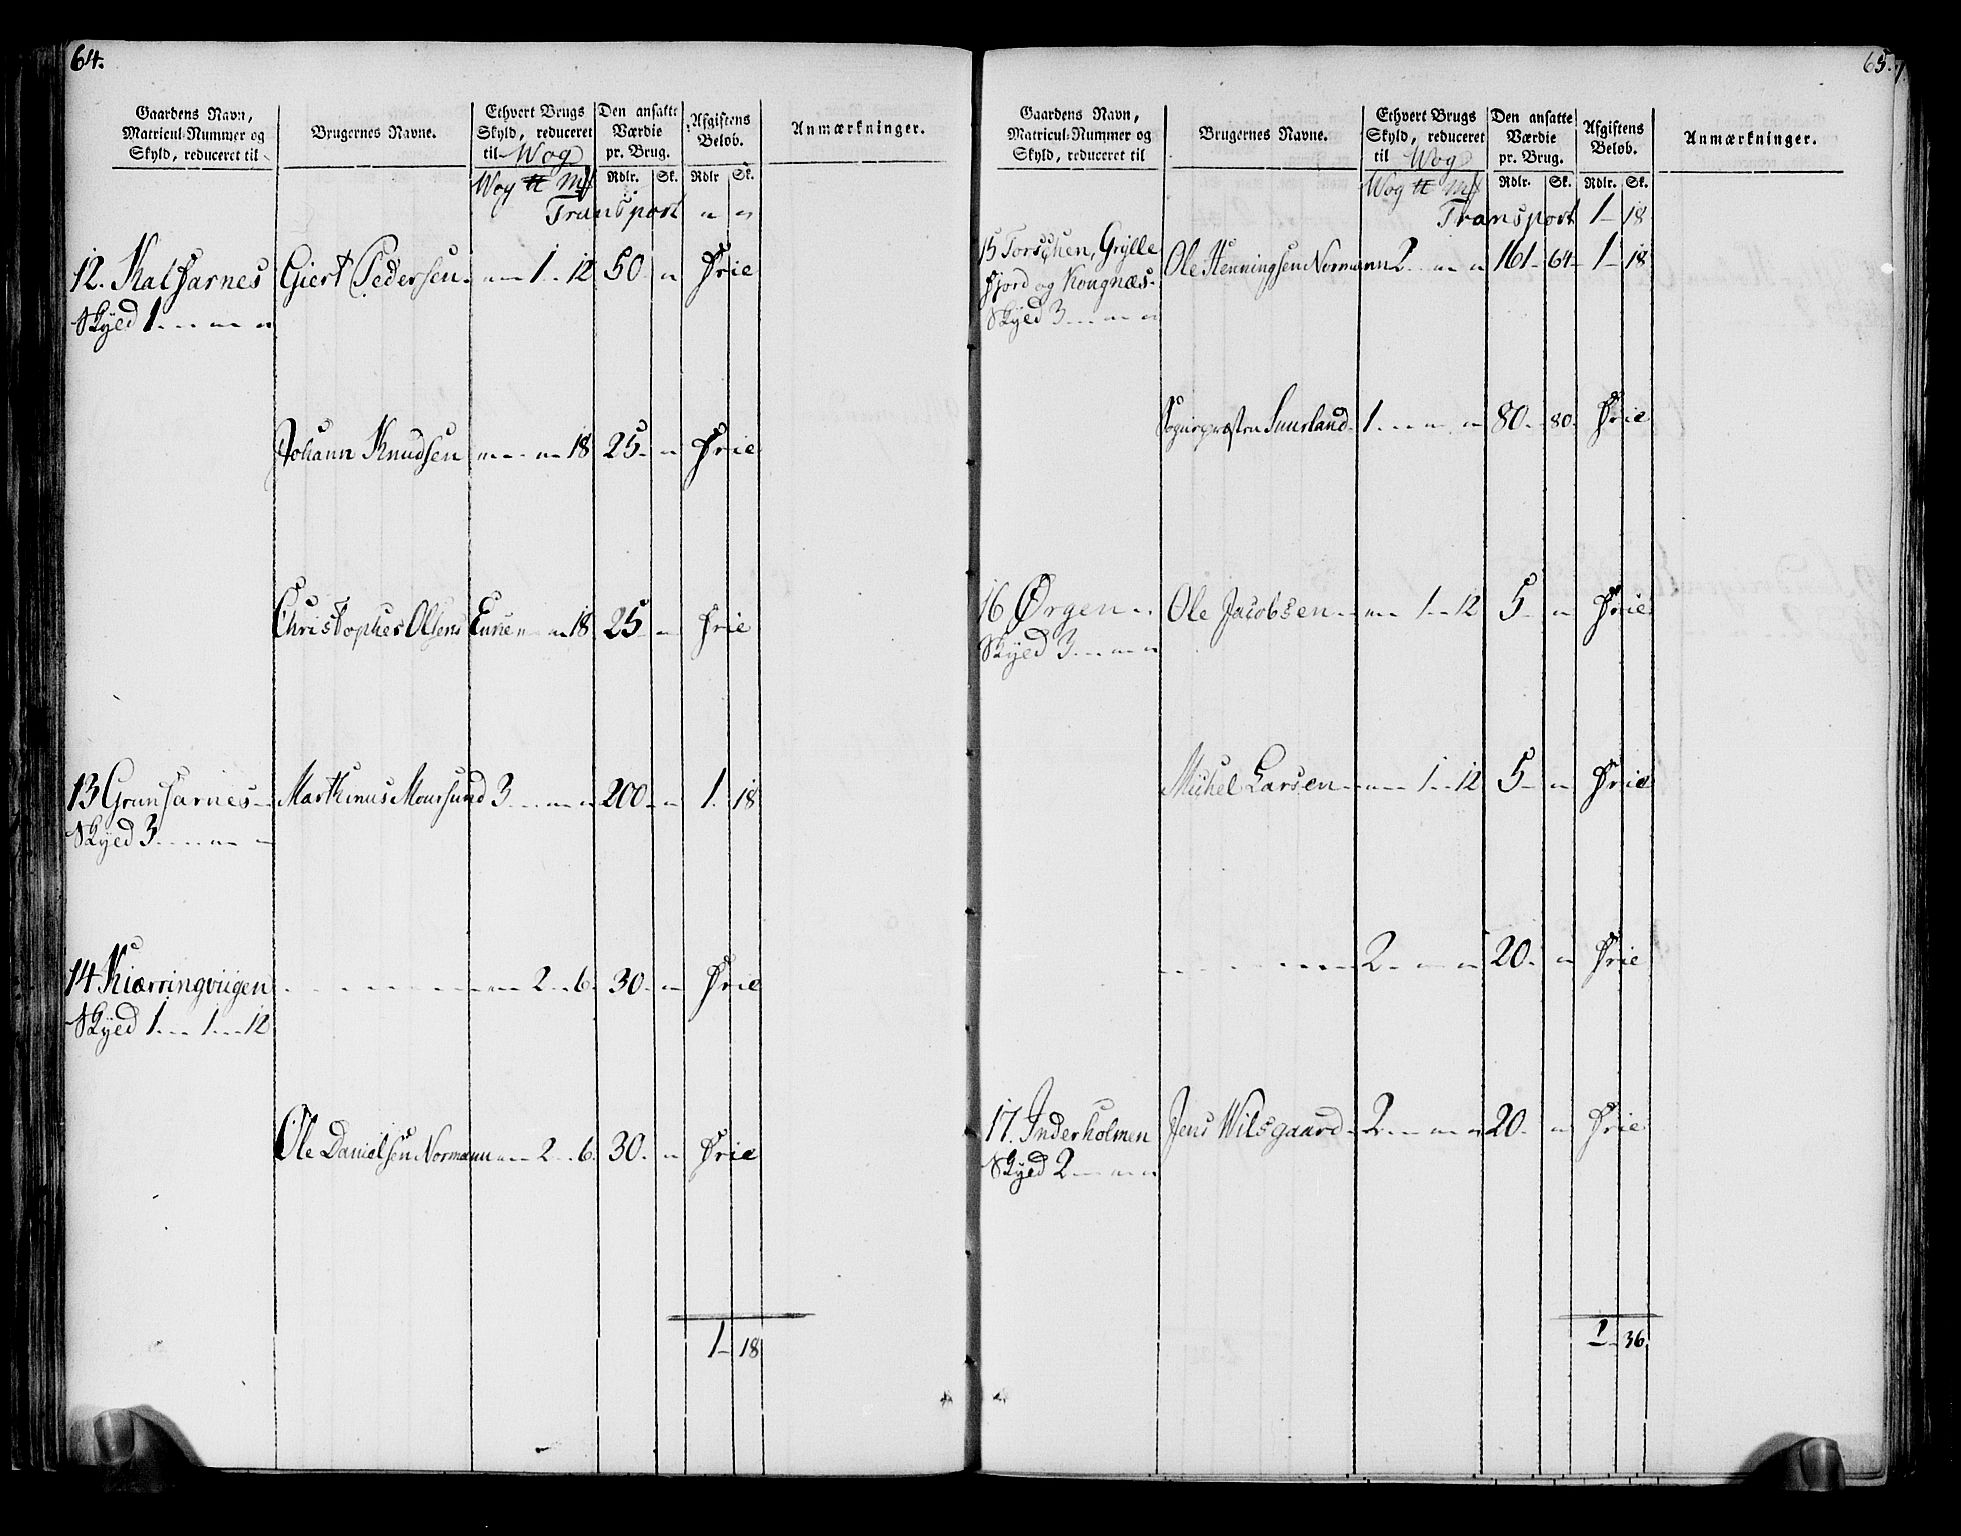 64.
Gaardens Navn, Matricul-Nummer og Skyld, reduceret til
Brugernes Navne.
Ethvert Brugs Skyld, reduceret til Wog
Den ansatte Værdie pr. Brug.
Afgiftens Beløb.
Anmærkninger.
Wog ℔ Mk Rdlr. Sk. Rdlr Sk.
Transport " "
12. Kalfarnes Giert Pedersen " 1 12 50 " Frie
Skyed 1 " "
Johann Knudsen " " 18 25 " Frie
Christopher Olsens Enne " 18 25 " Frie
13 Grunfarnes Marthinus Moursund 3 " " 200 " 1 18
Skyed 3 " "
14 Kiærringviigen " 2 6 30 " Frie
Skyed 1 1 12
Ole Danielsen Normann " 2 6 30 " Frie
1 18
65.
Gaardens Navn, Matricul-Nummer og Skyld, reduceret til
Brugernes Navne.
Ethvert Brugs Skyld, reduceret til Wog
Den ansatte Værdie pr. Brug.
Afgiftens Beløb.
Anmærkninger.
Wog ℔ Mk Rdlr. Sk. Rdlr. Sk.
Transport 1 18
15 Torschen, Grylle
fjord og Kongnæs Ole Henningsen Normann 2 " " 161 64 1 18
Skyed 3 " "
Sognepræsten Suurland 1 " " 80 80 Frie
16 Ørgen Ole Jacobsen " 1 12 5 " Frie
Skyed 3 " "
Michel Larsen " 1 12 5 " Frie
2 " " 20 " Frie
17. Inderholmen Jens Wilsgaard 2 " " 20 " Frie
Skyed 2 " "
1 36